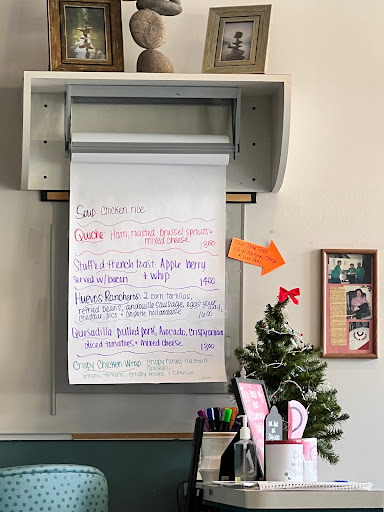 Soup Chicken rice
Quiche Ham, roasted brussel sprouts +
mixed cheese 1300
Stuffed french toast Apple berry
served w/ bacon + whip 1400
Huevos Rancheros: 2 corn tortillas,
refried beans, andouille sausage, eggs your way,
cheddar, pico + chipotle hollandaise 1600
Quesadilla pulled pork, Avocado, Crispy onions
diced tomatoes + mixed cheese 1300
Crispy Chicken Wrap crispy honey mustard
chicken,
lettuce, tomato, crispy onions + cheese